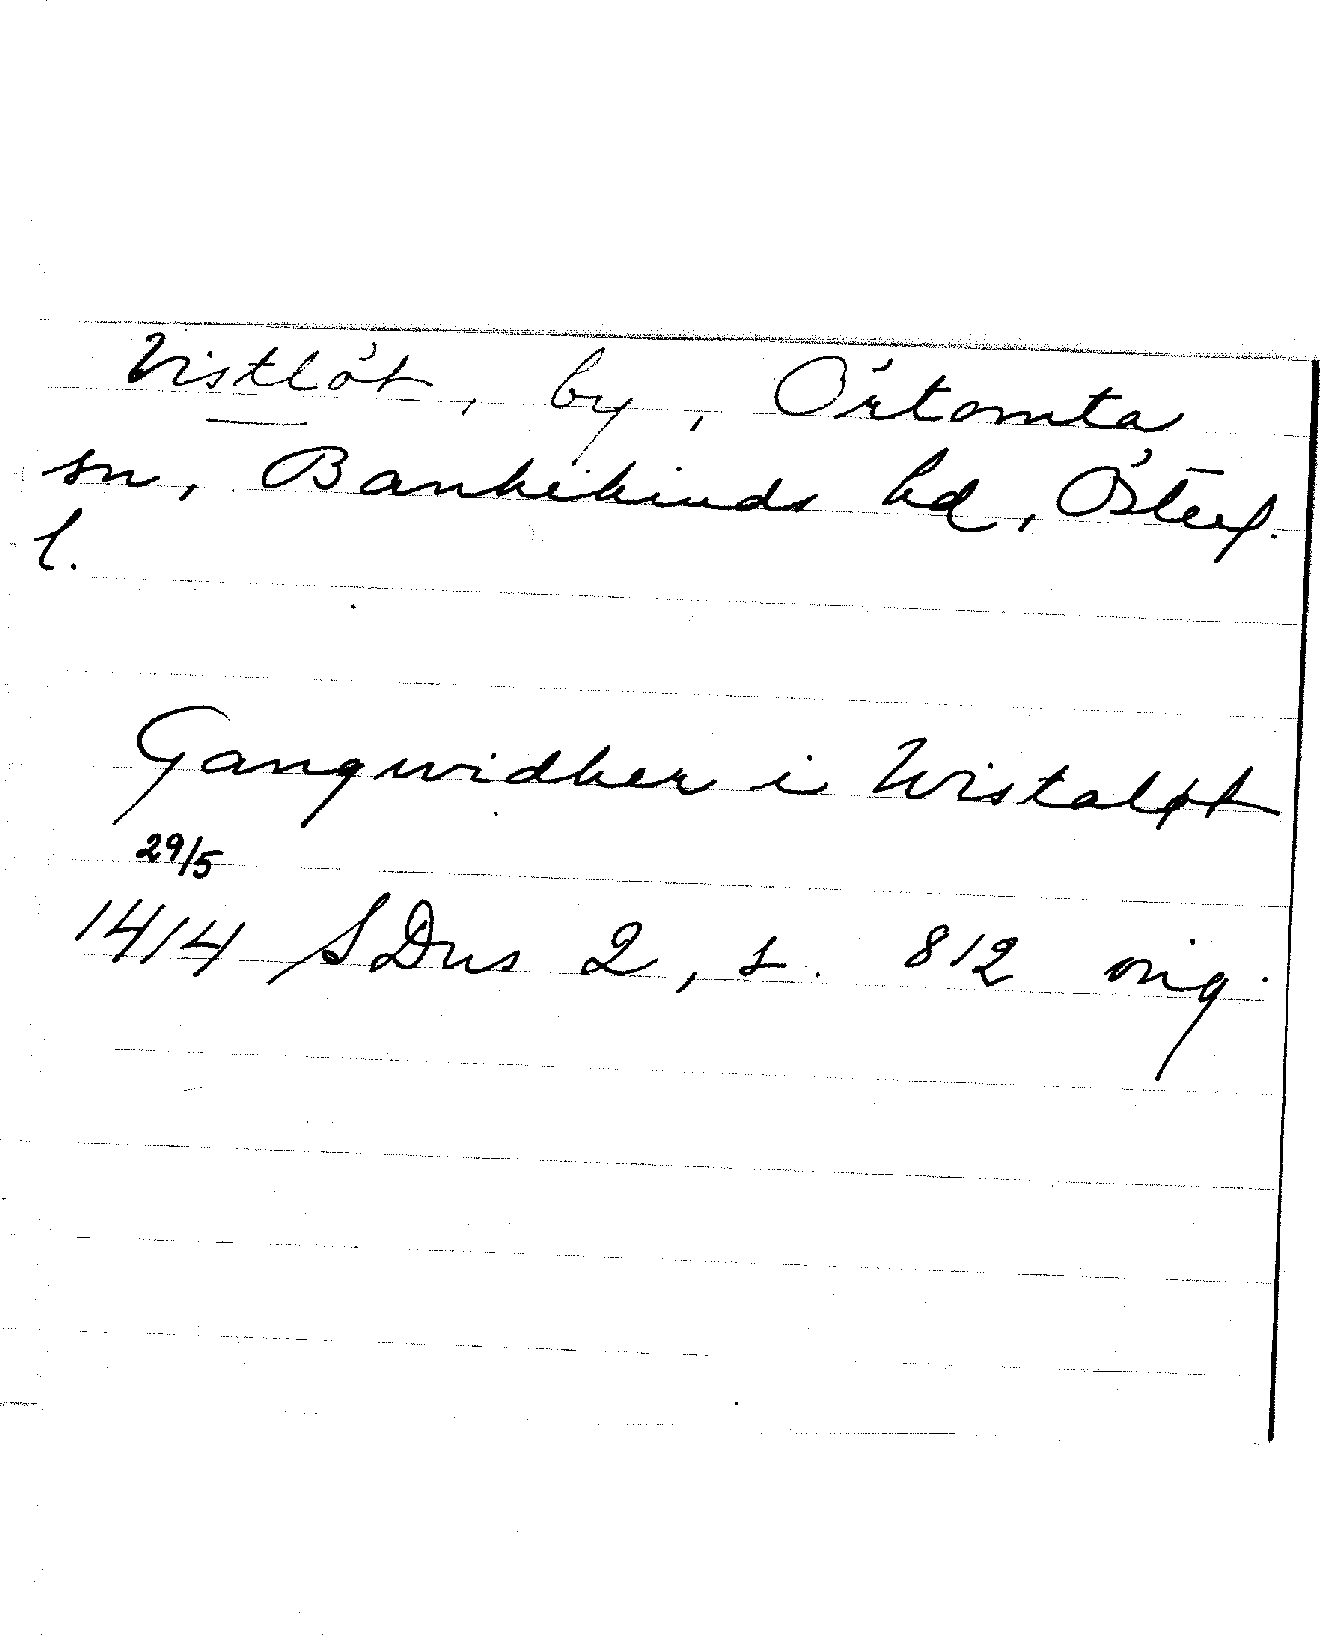 Vistlöt, by, Örtomta
sn, Bankekinds hd, Österg.
l.
Gangwidher i Wistaløt
29/5
1414 SDns 2, s. 812 orig.